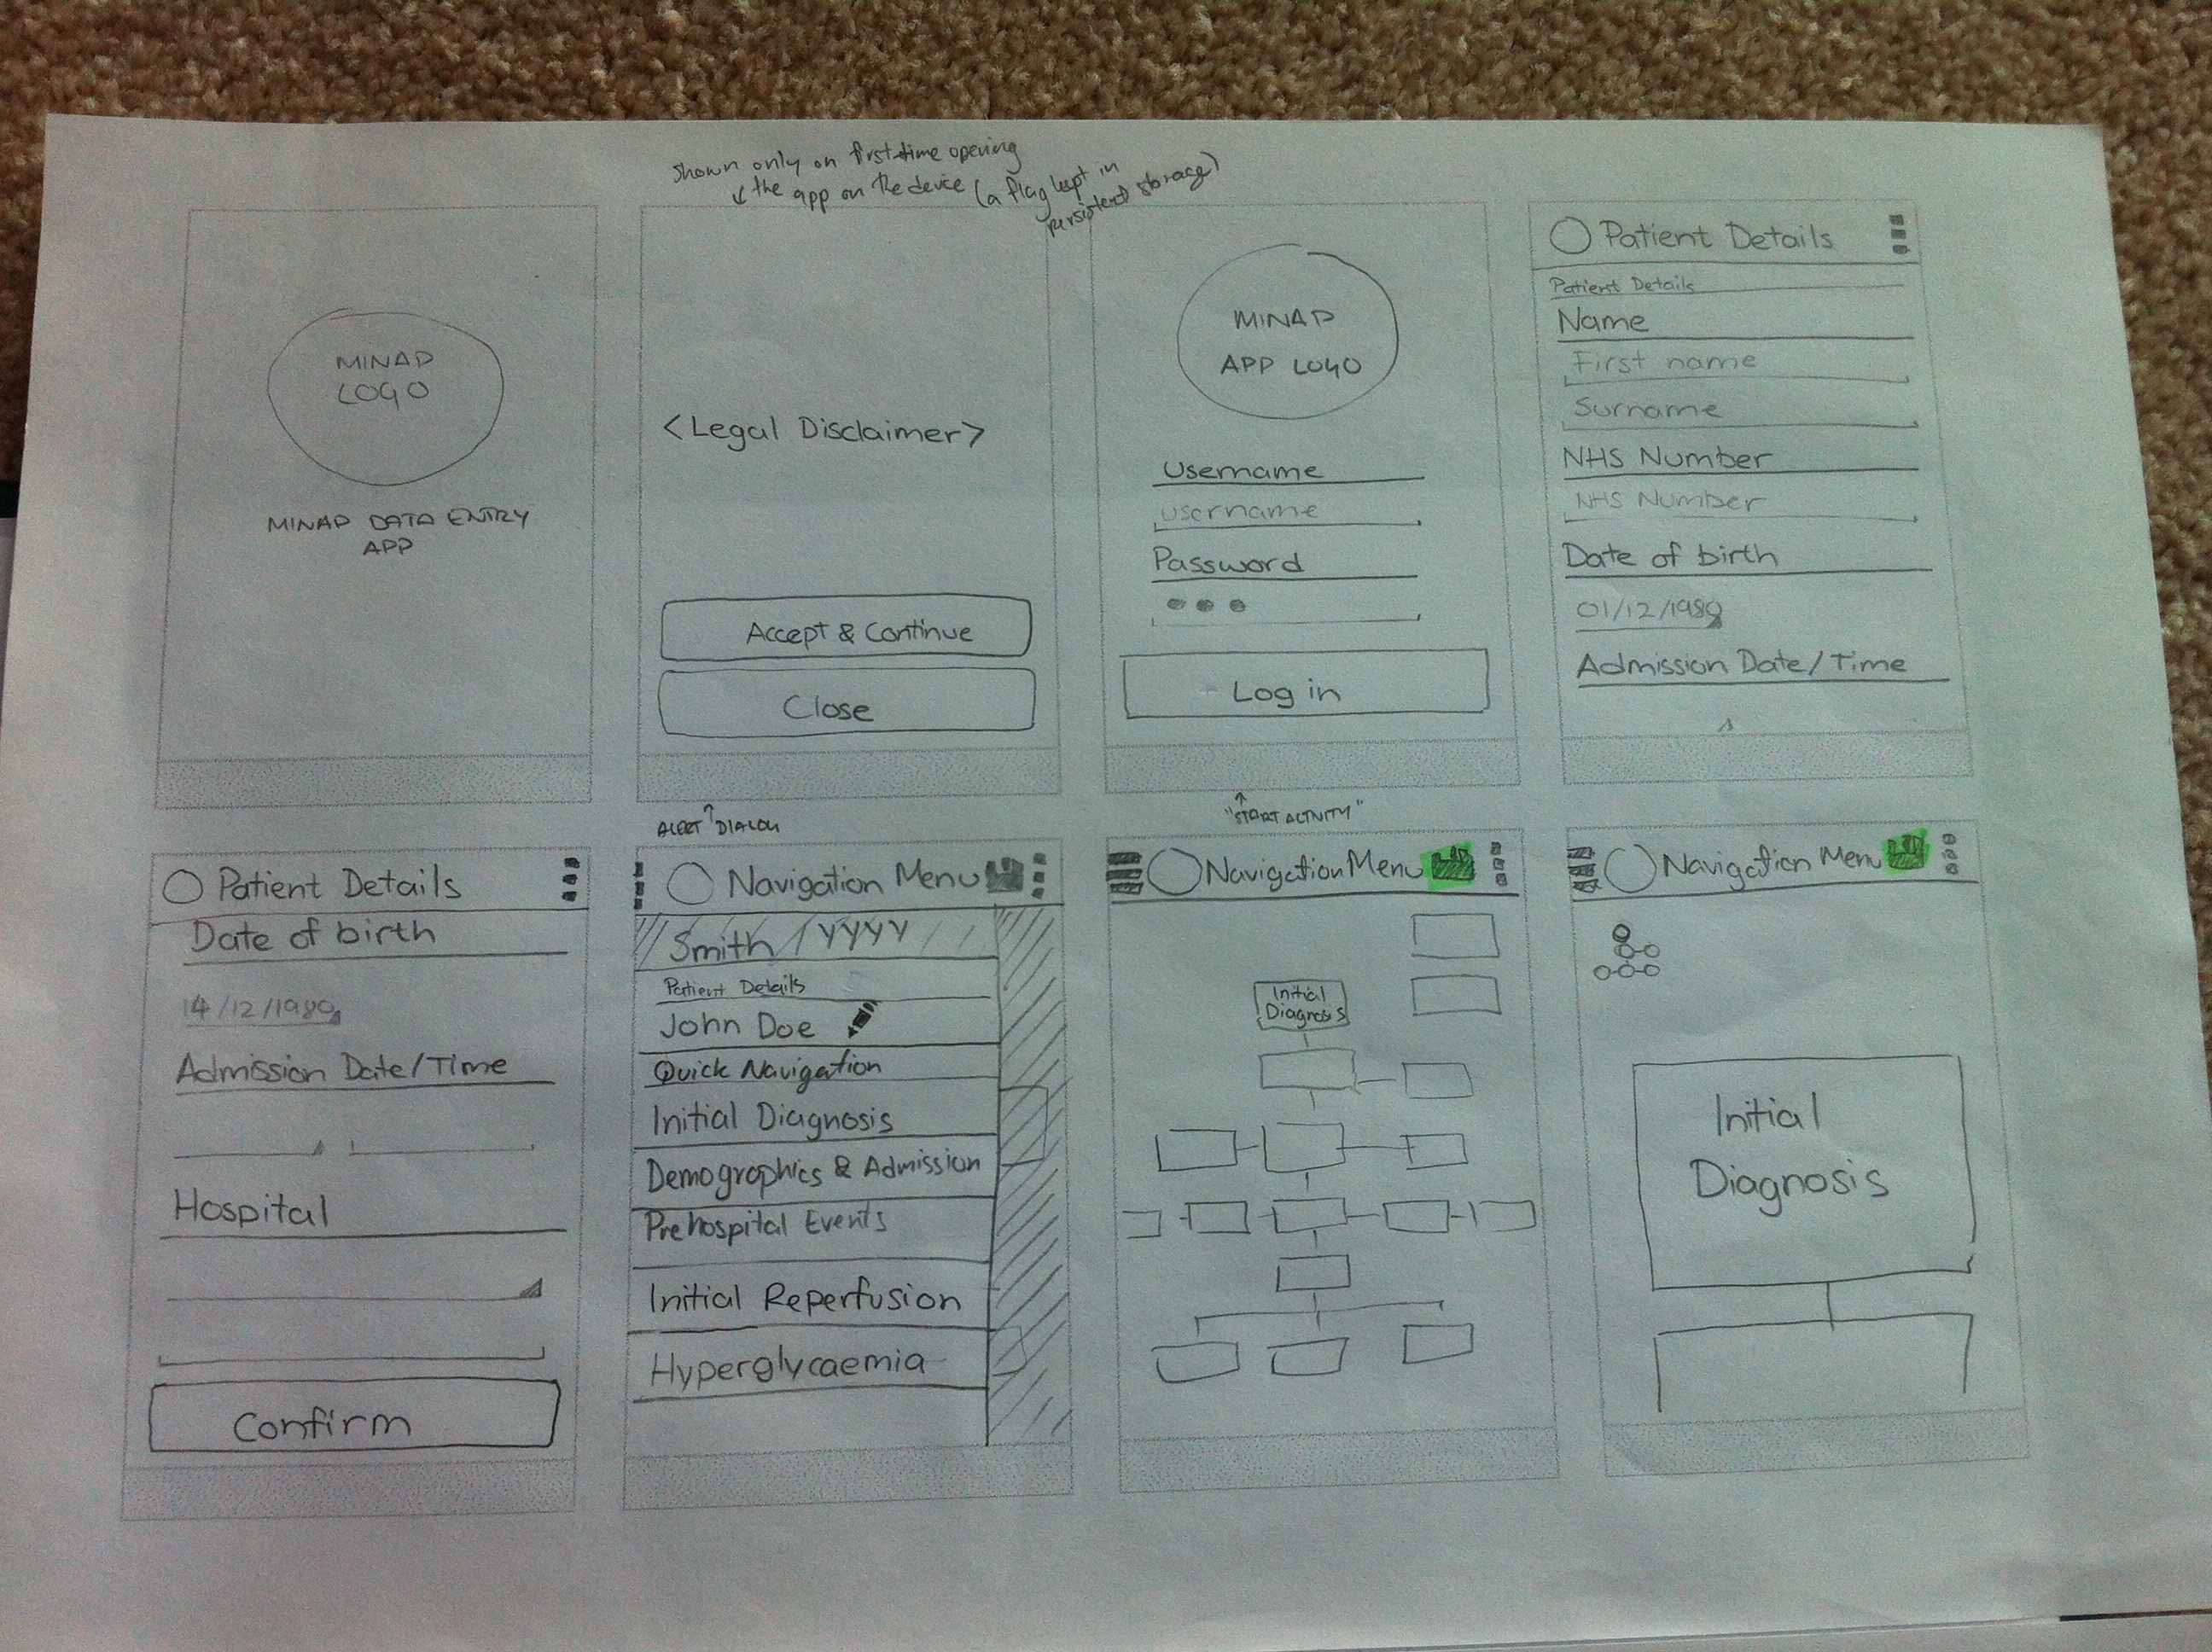 Shown only on first time opening
the app on the device (a flag kept in
persistent storage)
MINAP
LOGO
MINAP DATA ENTRY
APP
<Legal Disclaimer>
Accept & Continue
Close
MINAP
APP LOGO
Username
username
Password
Log in
Patient Details
Patient Details
Name
First name
Surname
NHS Number
NHS Number
Date of birth
01/12/1989
Admission Date/Time
ALERT DIALOG
"START ACTIVITY"
Patient Details
Date of birth
14/12/1989
Admission Date/Time
Hospital
Confirm
Navigation Menu
Smith / YYYY
Patient Details
John Doe
Quick Navigation
Initial Diagnosis
Demographics & Admission
Prehospital Events
Initial Reperfusion
Hyperglycaemia
Navigation Menu
Initial
Diagnosis
Navigation Menu
Initial
Diagnosis